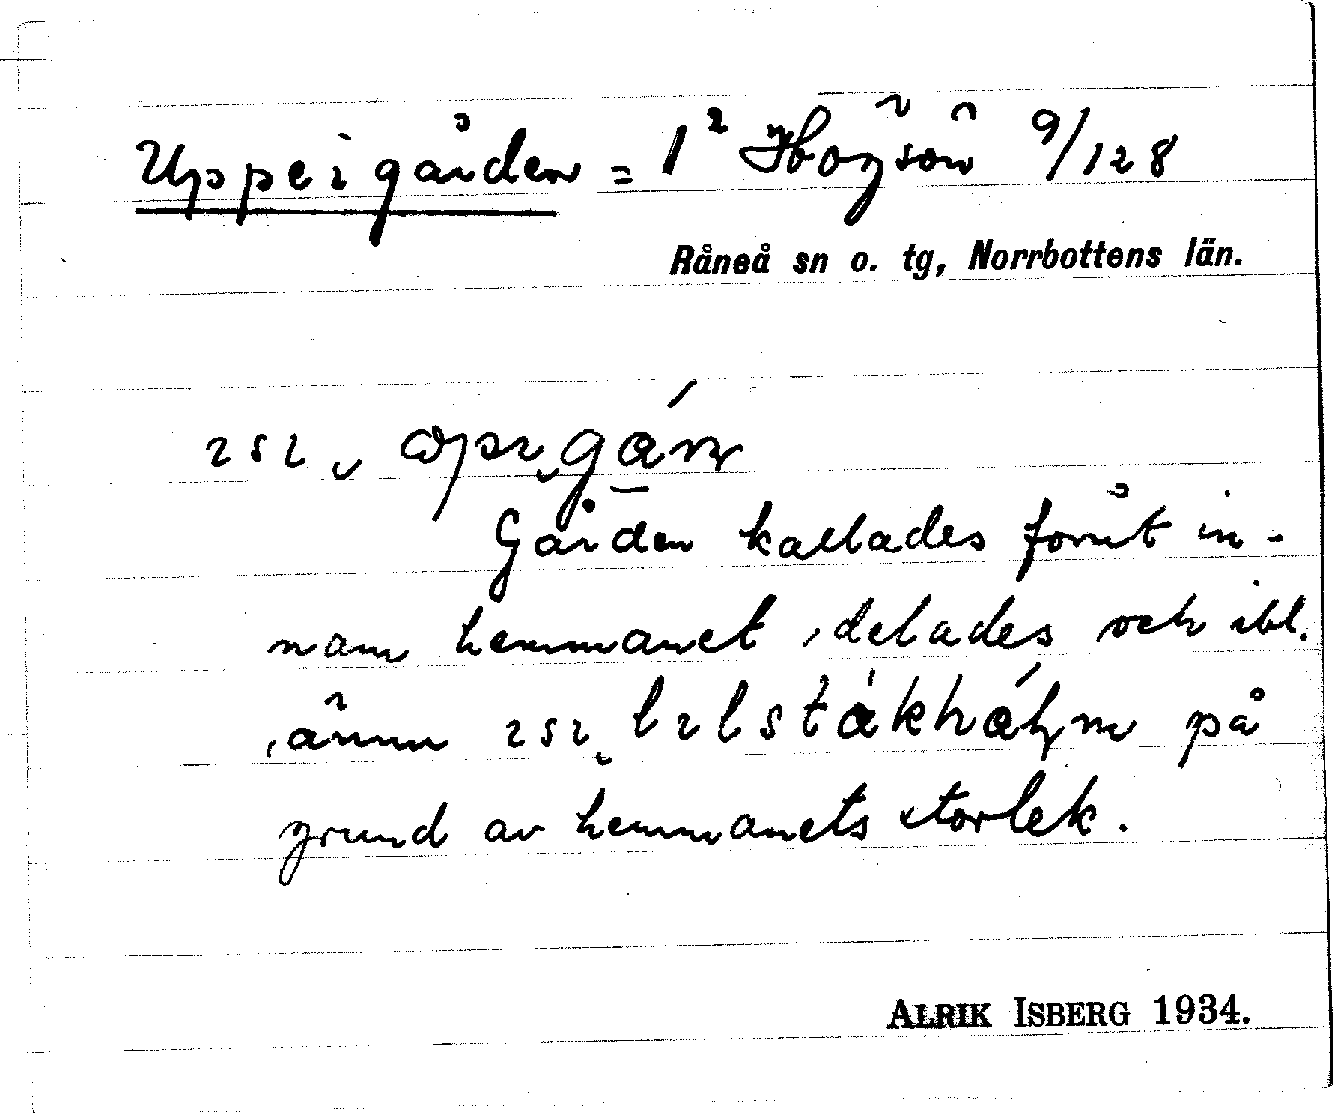 Uppergården = 1² Högsön 9/128
Råneå sn o. tg, Norrbottens län.
Gården kallades förut in-
nan hemmanet delades och ibl.
ännu på
grund av hemmanets storlek.
ALRIK ISBERG 1934.